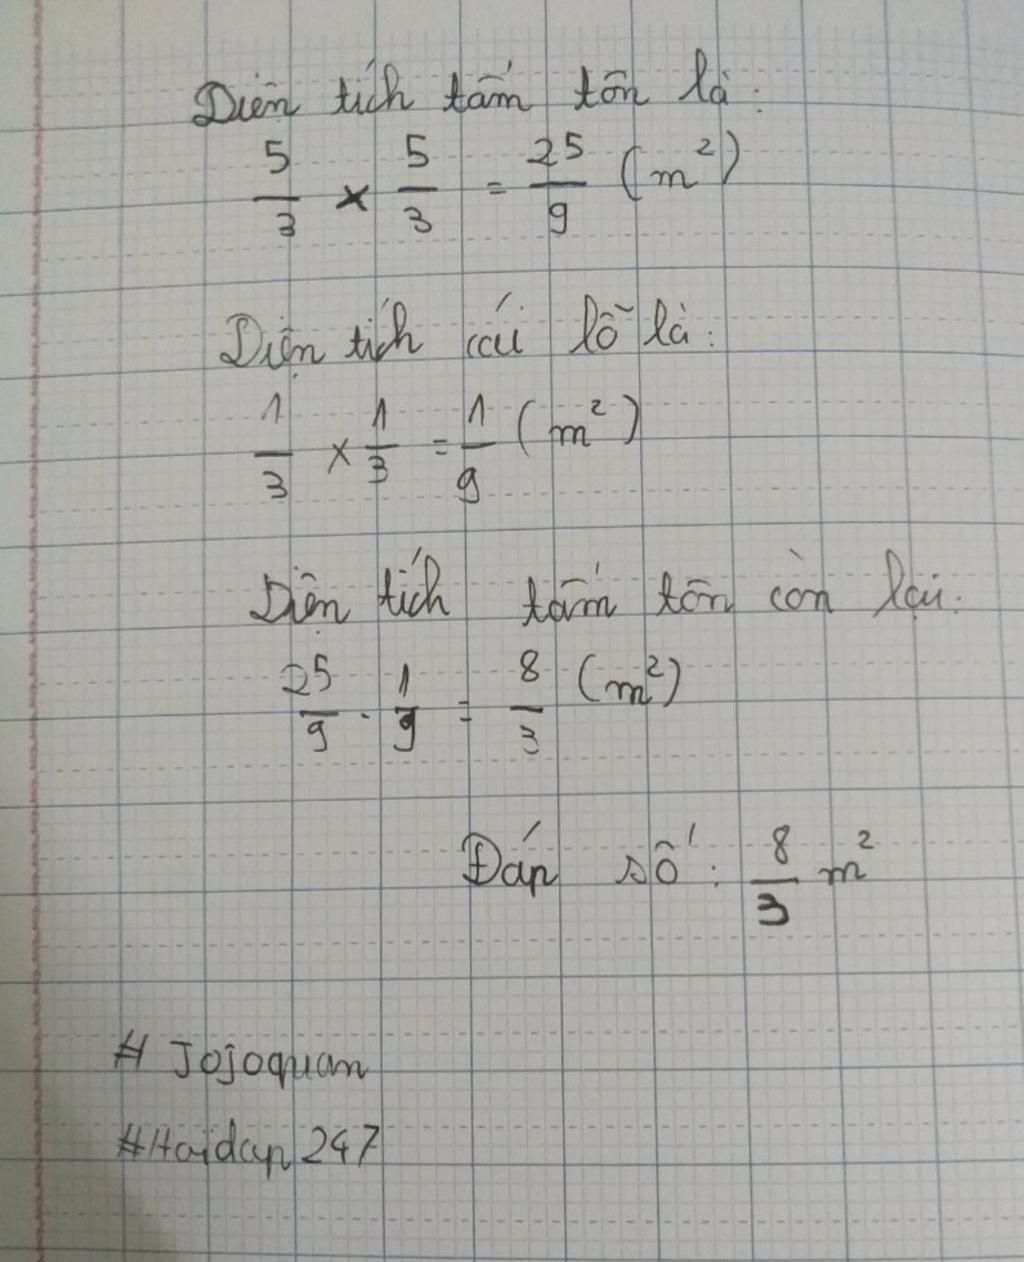 Diện tích tấm tôn là:
5/3 × 5/3 = 25/9 (m²)
Diện tích cái lỗ là:
1/3 × 1/3 = 1/9 (m²)
Diện tích tấm tôn còn lại:
25/9 - 1/9 = 8/3 (m²)
Đáp số: 8/3 m²
# Jojoquan
#Hoidap 247